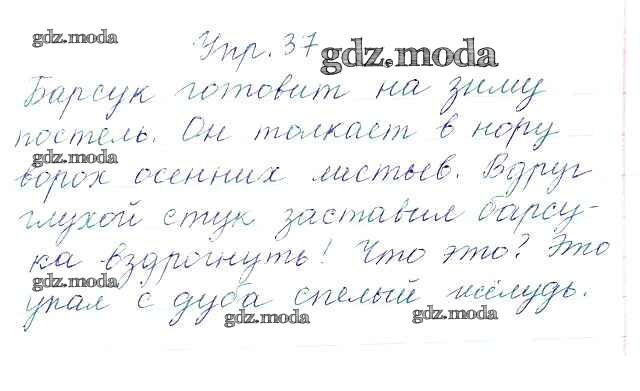 gdz.moda
Упр. 37 gdz.moda
Барсук готовит на зиму
постель. Он толкает в нору
gdz.moda
ворох осенних листьев. Вдруг
глухой стук заставил барсу-
ка вздрогнуть! Что это? Это
gdz.moda
упал с дуба спелый жёлудь.
gdz.moda gdz.moda